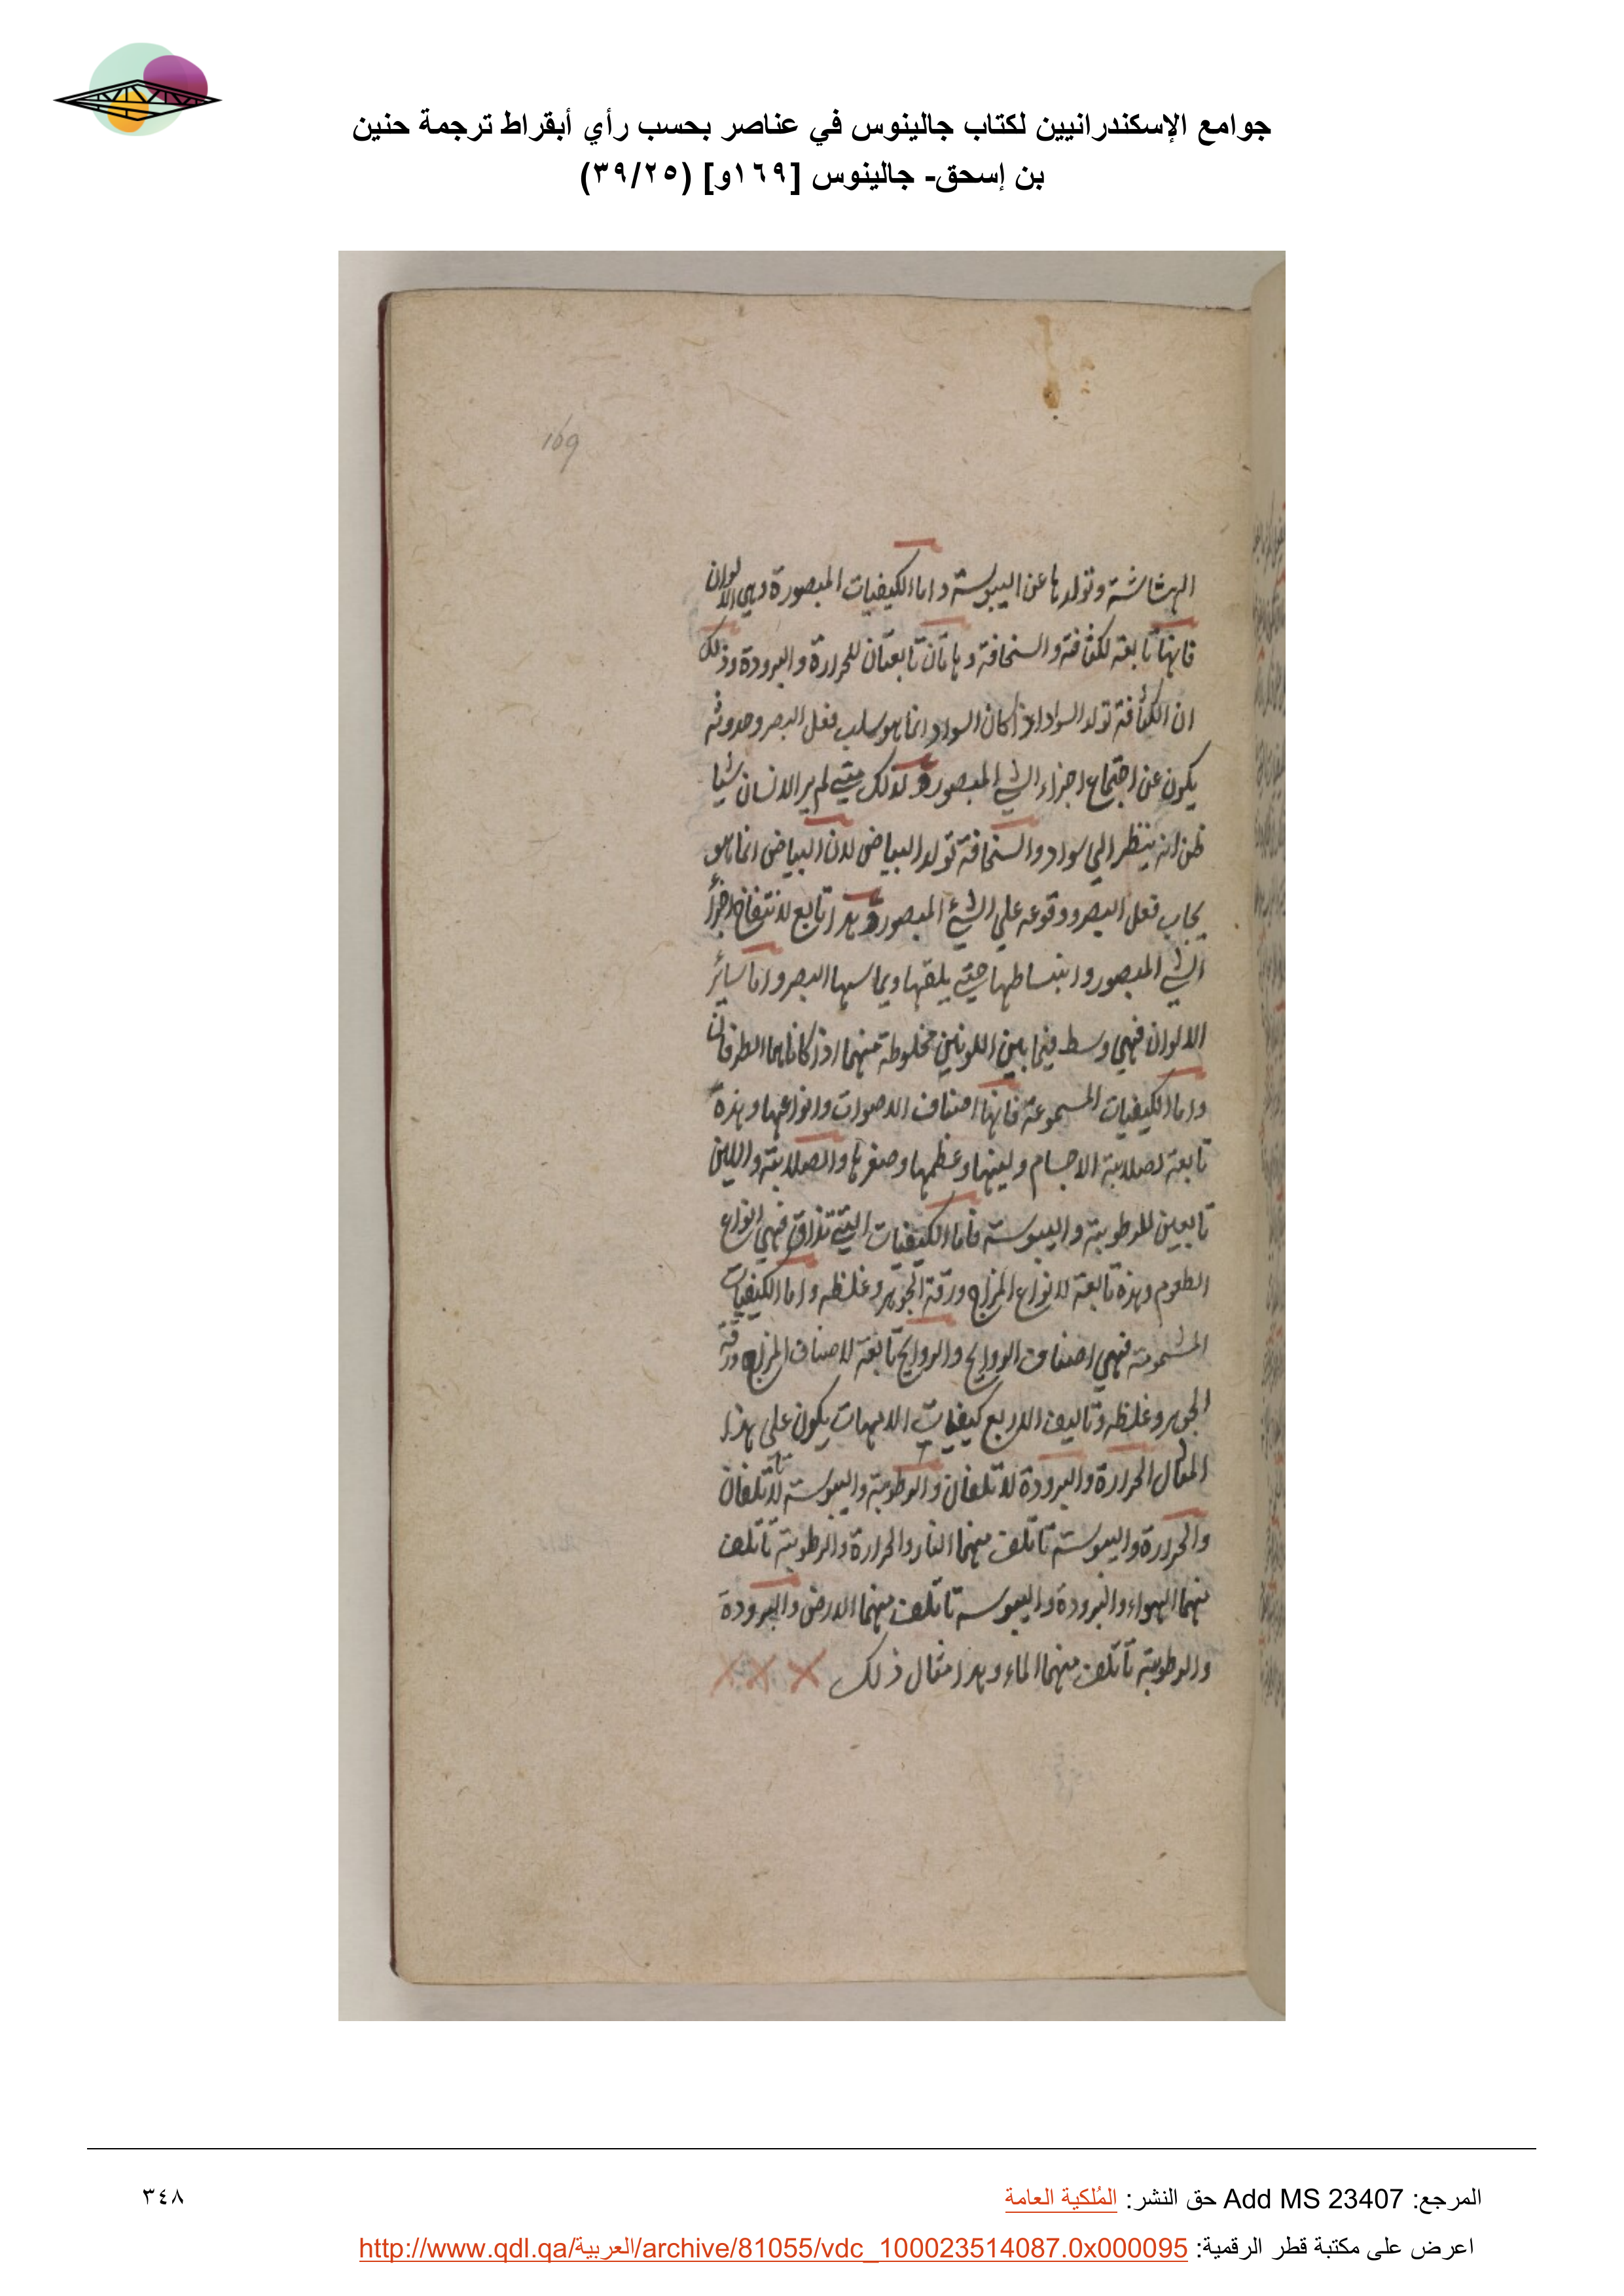 جوامع الإسكندرانيين لكتاب جالينوس في عناصر بحسب رأي أبقراط ترجمة حنين
بن إسحق- جالينوس [١٦٩و] (٣٩/٢٥)
169
الهشاشة وتولدها عن اليبوسة واما الكيفيات المبصورة وهي الالوان
فانها تابعة لكثافة والسخافة وهاتان تابعتان للحرارة والبرودة وذلك
ان الكثافة تولد السواد اذ كان السواد انما هو سلب فعل البصر وحدوثه
يكون عن اجتماع اجزاء الشي المبصور ولذلك متي لم ير الانسان شيا
ظن انه ينظر الي سواد والسخافة تولد البياض لان البياض انما هو
يجاب فعل البصر ووقوعه علي الشيء المبصور وهذا تابع لانتفاخ اجزأ
الشي المبصور وانبساطها حتي يلقها ويماسها البصر واما سائر
الالوان فهي وسط فيما بين اللونين مخلوطة منهما اذ كانا هما الطرفان
واما الكيفيات المسموعة فانها اصناف الاصوات وانواعها وهذة
تابعة لصلابة الاجسام ولينها وعظمها وصغرها والصلابة واللين
تابعين للرطوبة واليبوسة فاما الكيفيات التي تذاق فهي انواع
الطعوم وهذة تابعة لانواع المزاج ورقة الجوهر وغلظه واما الكيفيات
المشمومة فهي اصناف الروايح والروايح تابعة لاصناف المزاج ورقة
الجوهر وغلظه وتاليف الاربع كيفيات الامهات يكون علي هذا
المثال الحرارة والبرودة لا تاتلفان والرطوبة واليبوسة لا تاتلفان
والحرارة واليبوسة تاتلف منهما النار والحرارة والرطوبة تاتلف
منهما الهواء والبرودة واليبوسه تاتلف منهما الارض والبرودة
والرطوبة تاتلف منهما الماء وهذا مثال ذلك
المرجع: Add MS 23407 حق النشر: المُلكية العامة
٣٤٨
اعرض على مكتبة قطر الرقمية: http://www.qdl.qa/العربية/archive/81055/vdc_100023514087.0x000095